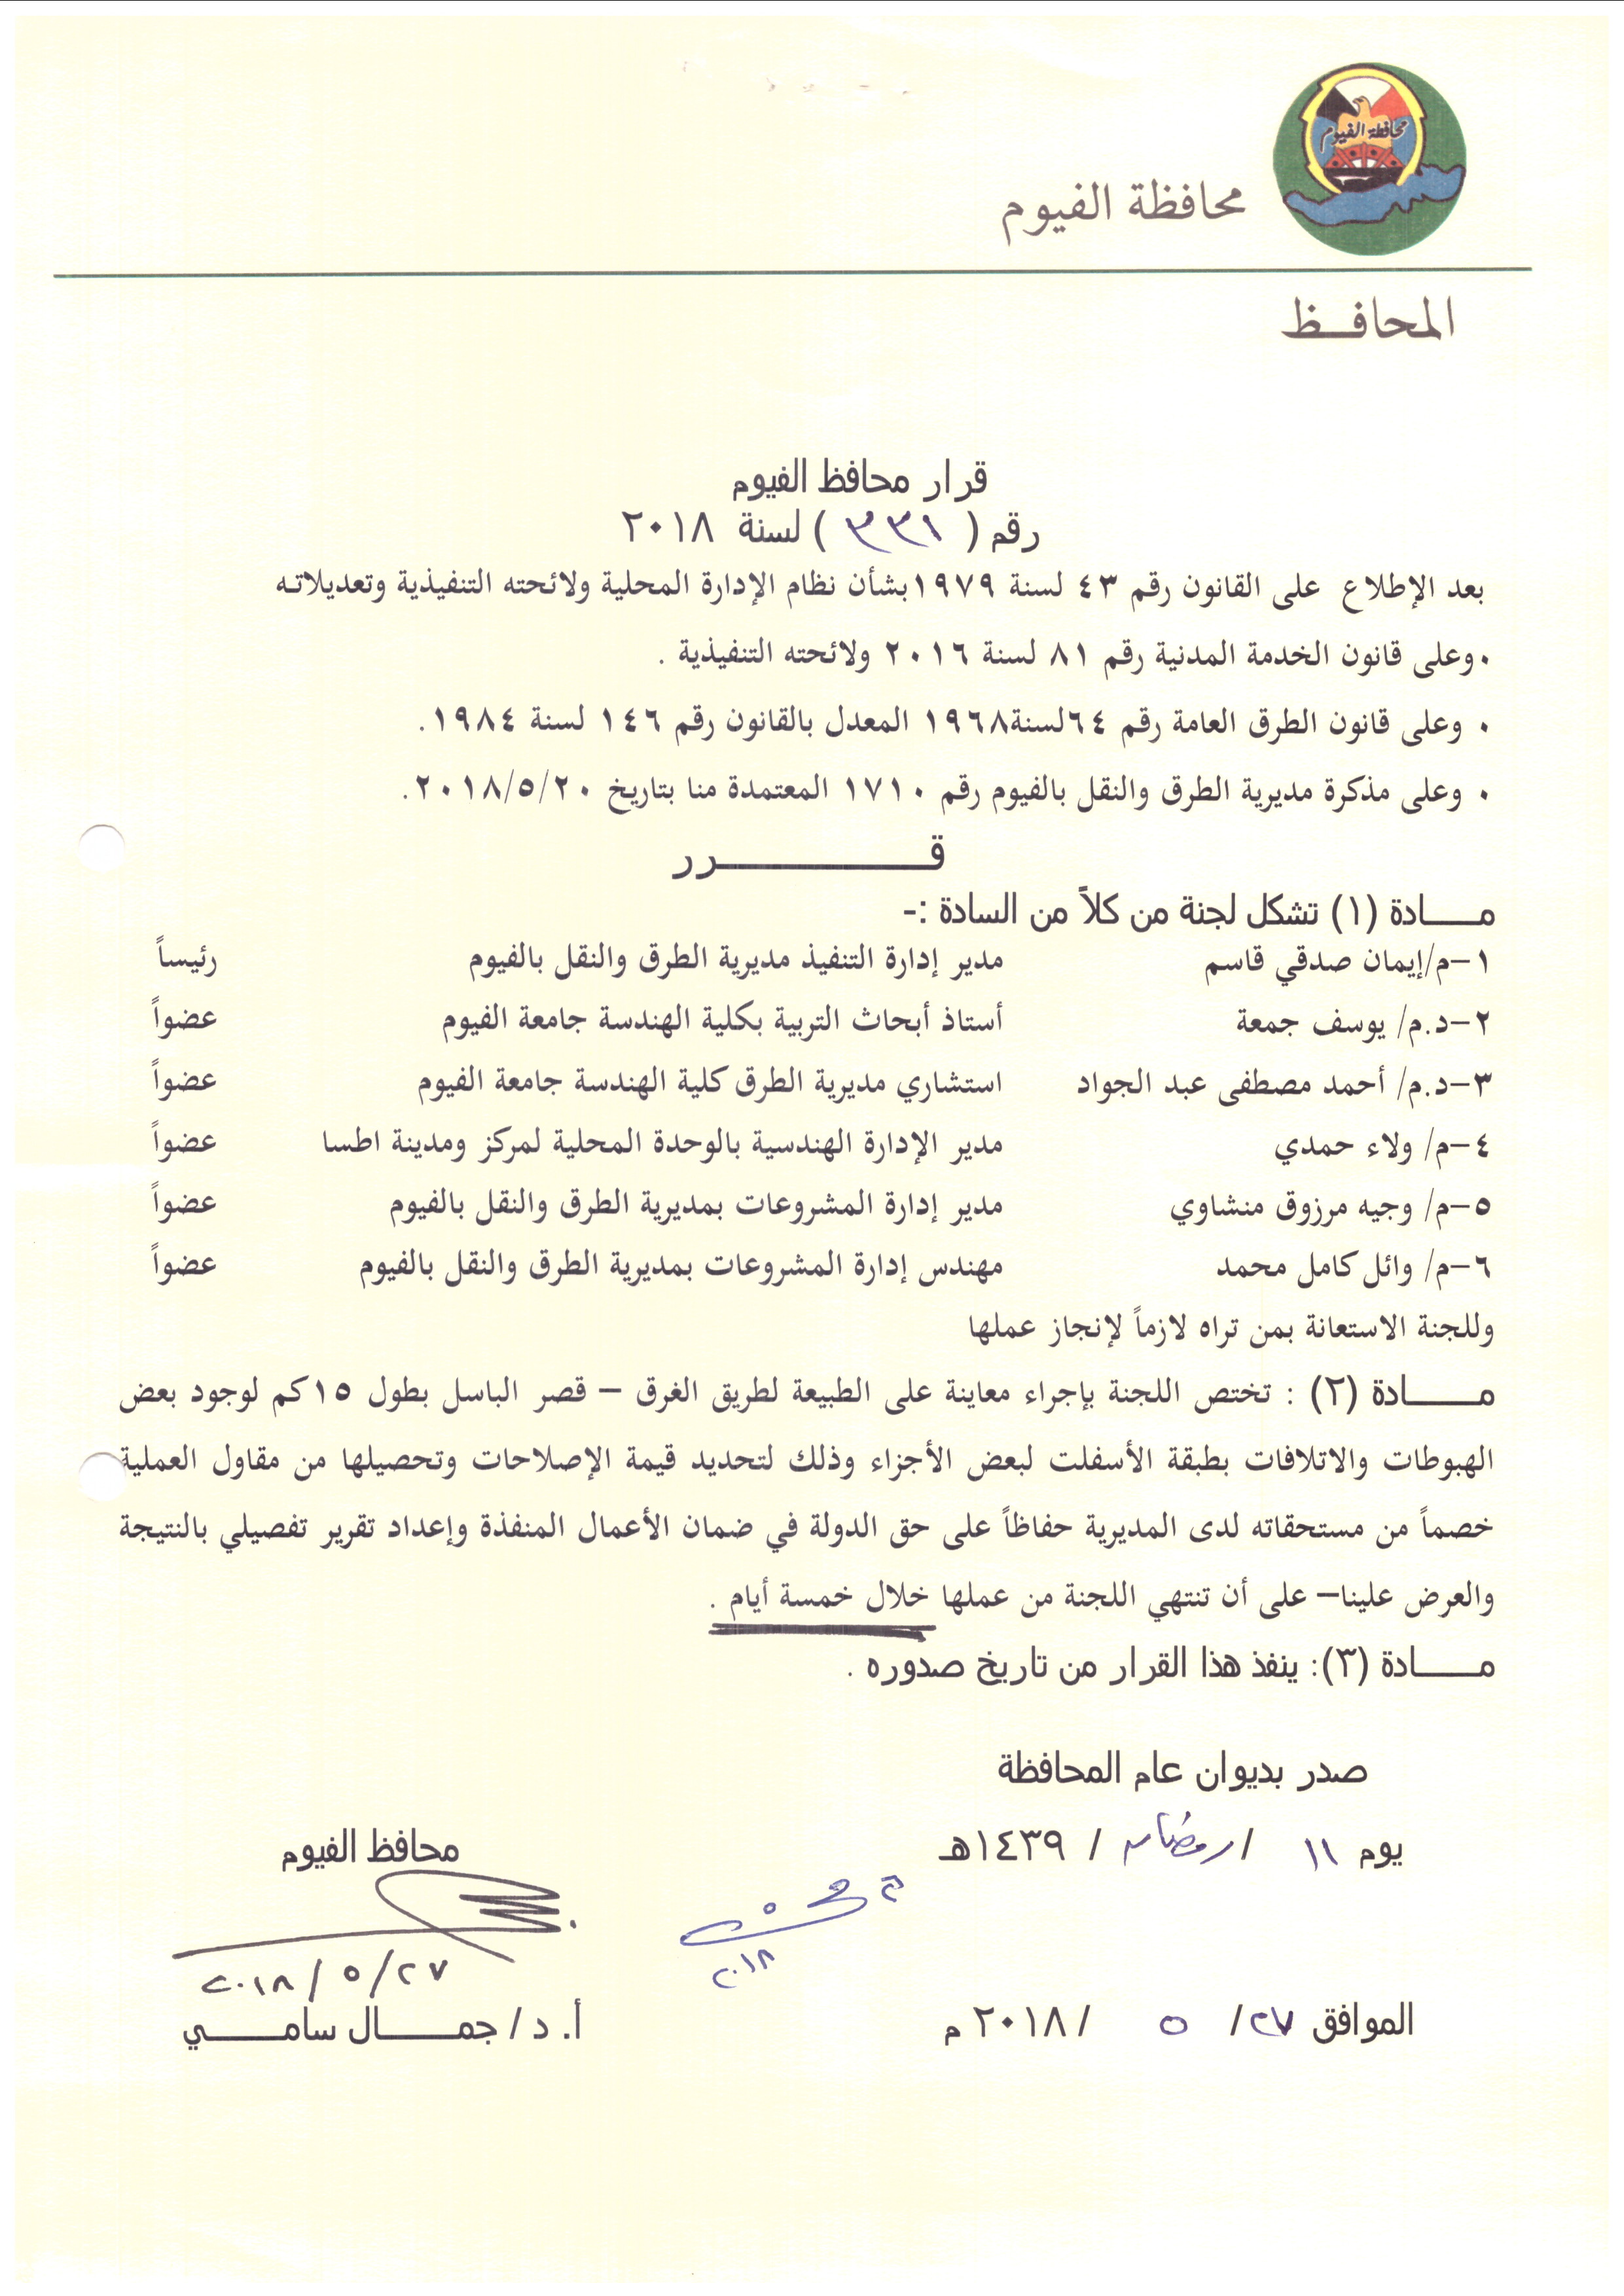 محافظة الفيوم
محافظة الفيوم
المحافـــظ
قرار محافظ الفيوم
رقم ( ٣٣١ ) لسنة ٢٠١٨
بعد الإطلاع على القانون رقم ٤٣ لسنة ١٩٧٩بشأن نظام الإدارة المحلية ولائحته التنفيذية وتعديلاته
٠وعلى قانون الخدمة المدنية رقم ٨١ لسنة ٢٠١٦ ولائحته التنفيذية .
٠ وعلى قانون الطرق العامة رقم ٦٤لسنة١٩٦٨ المعدل بالقانون رقم ١٤٦ لسنة ١٩٨٤.
٠ وعلى مذكرة مديرية الطرق والنقل بالفيوم رقم ١٧١٠ المعتمدة منا بتاريخ ٢٠١٨/٥/٢٠.
قـــــــــــــرر
مــــــادة (١) تشكل لجنة من كلاً من السادة :-
١-م/إيمان صدقي قاسم مدير إدارة التنفيذ مديرية الطرق والنقل بالفيوم رئيساً
٢-د.م/ يوسف جمعة أستاذ أبحاث التربية بكلية الهندسة جامعة الفيوم عضواً
٣-د.م/ أحمد مصطفى عبد الجواد استشاري مديرية الطرق كلية الهندسة جامعة الفيوم عضواً
٤-م/ ولاء حمدي مدير الإدارة الهندسية بالوحدة المحلية لمركز ومدينة اطسا عضواً
٥-م/ وجيه مرزوق منشاوي مدير إدارة المشروعات بمديرية الطرق والنقل بالفيوم عضواً
٦-م/ وائل كامل محمد مهندس إدارة المشروعات بمديرية الطرق والنقل بالفيوم عضواً
وللجنة الاستعانة بمن تراه لازماً لإنجاز عملها
مــــــادة (٢) : تختص اللجنة بإجراء معاينة على الطبيعة لطريق الغرق – قصر الباسل بطول ١٥كم لوجود بعض
الهبوطات والاتلافات بطبقة الأسفلت لبعض الأجزاء وذلك لتحديد قيمة الإصلاحات وتحصيلها من مقاول العملية
خصماً من مستحقاته لدى المديرية حفاظاً على حق الدولة في ضمان الأعمال المنفذة وإعداد تقرير تفصيلي بالنتيجة
والعرض علينا– على أن تنتهي اللجنة من عملها خلال خمسة أيام .
مــــــادة (٣): ينفذ هذا القرار من تاريخ صدوره .
صدر بديوان عام المحافظة
يوم ١١ / رمضان / ١٤٣٩هـ
محافظ الفيوم
٢٠١٨
٢٠١٨/٥/٢٧
الموافق ٢٧/ ٥ / ٢٠١٨ م
أ. د/ جمـــــــال سامـــــــي